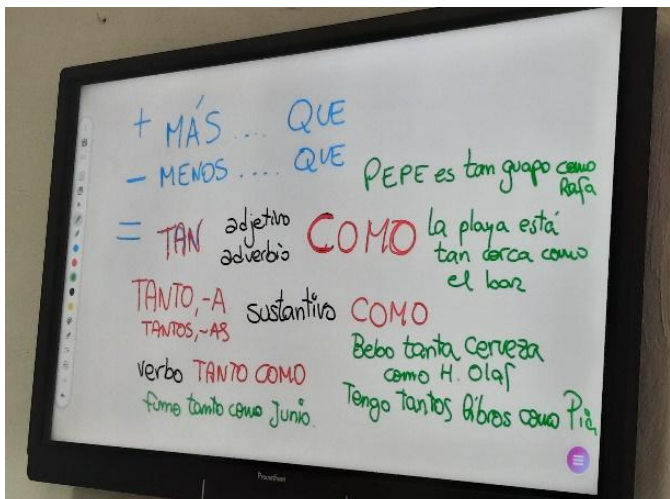 + MÁS .... QUE
- MENOS .... QUE
PEPE es tan guapo como
Rafa
= TAN adjetivo
adverbio COMO
la playa está
tan cerca como
el bar
TANTO, -A
TANTOS, -AS sustantivo COMO
Bebo tanta cerveza
como H. Olaf
Tengo tantos libros como Pia
verbo TANTO COMO
fumo tanto como Junio.
Promethean